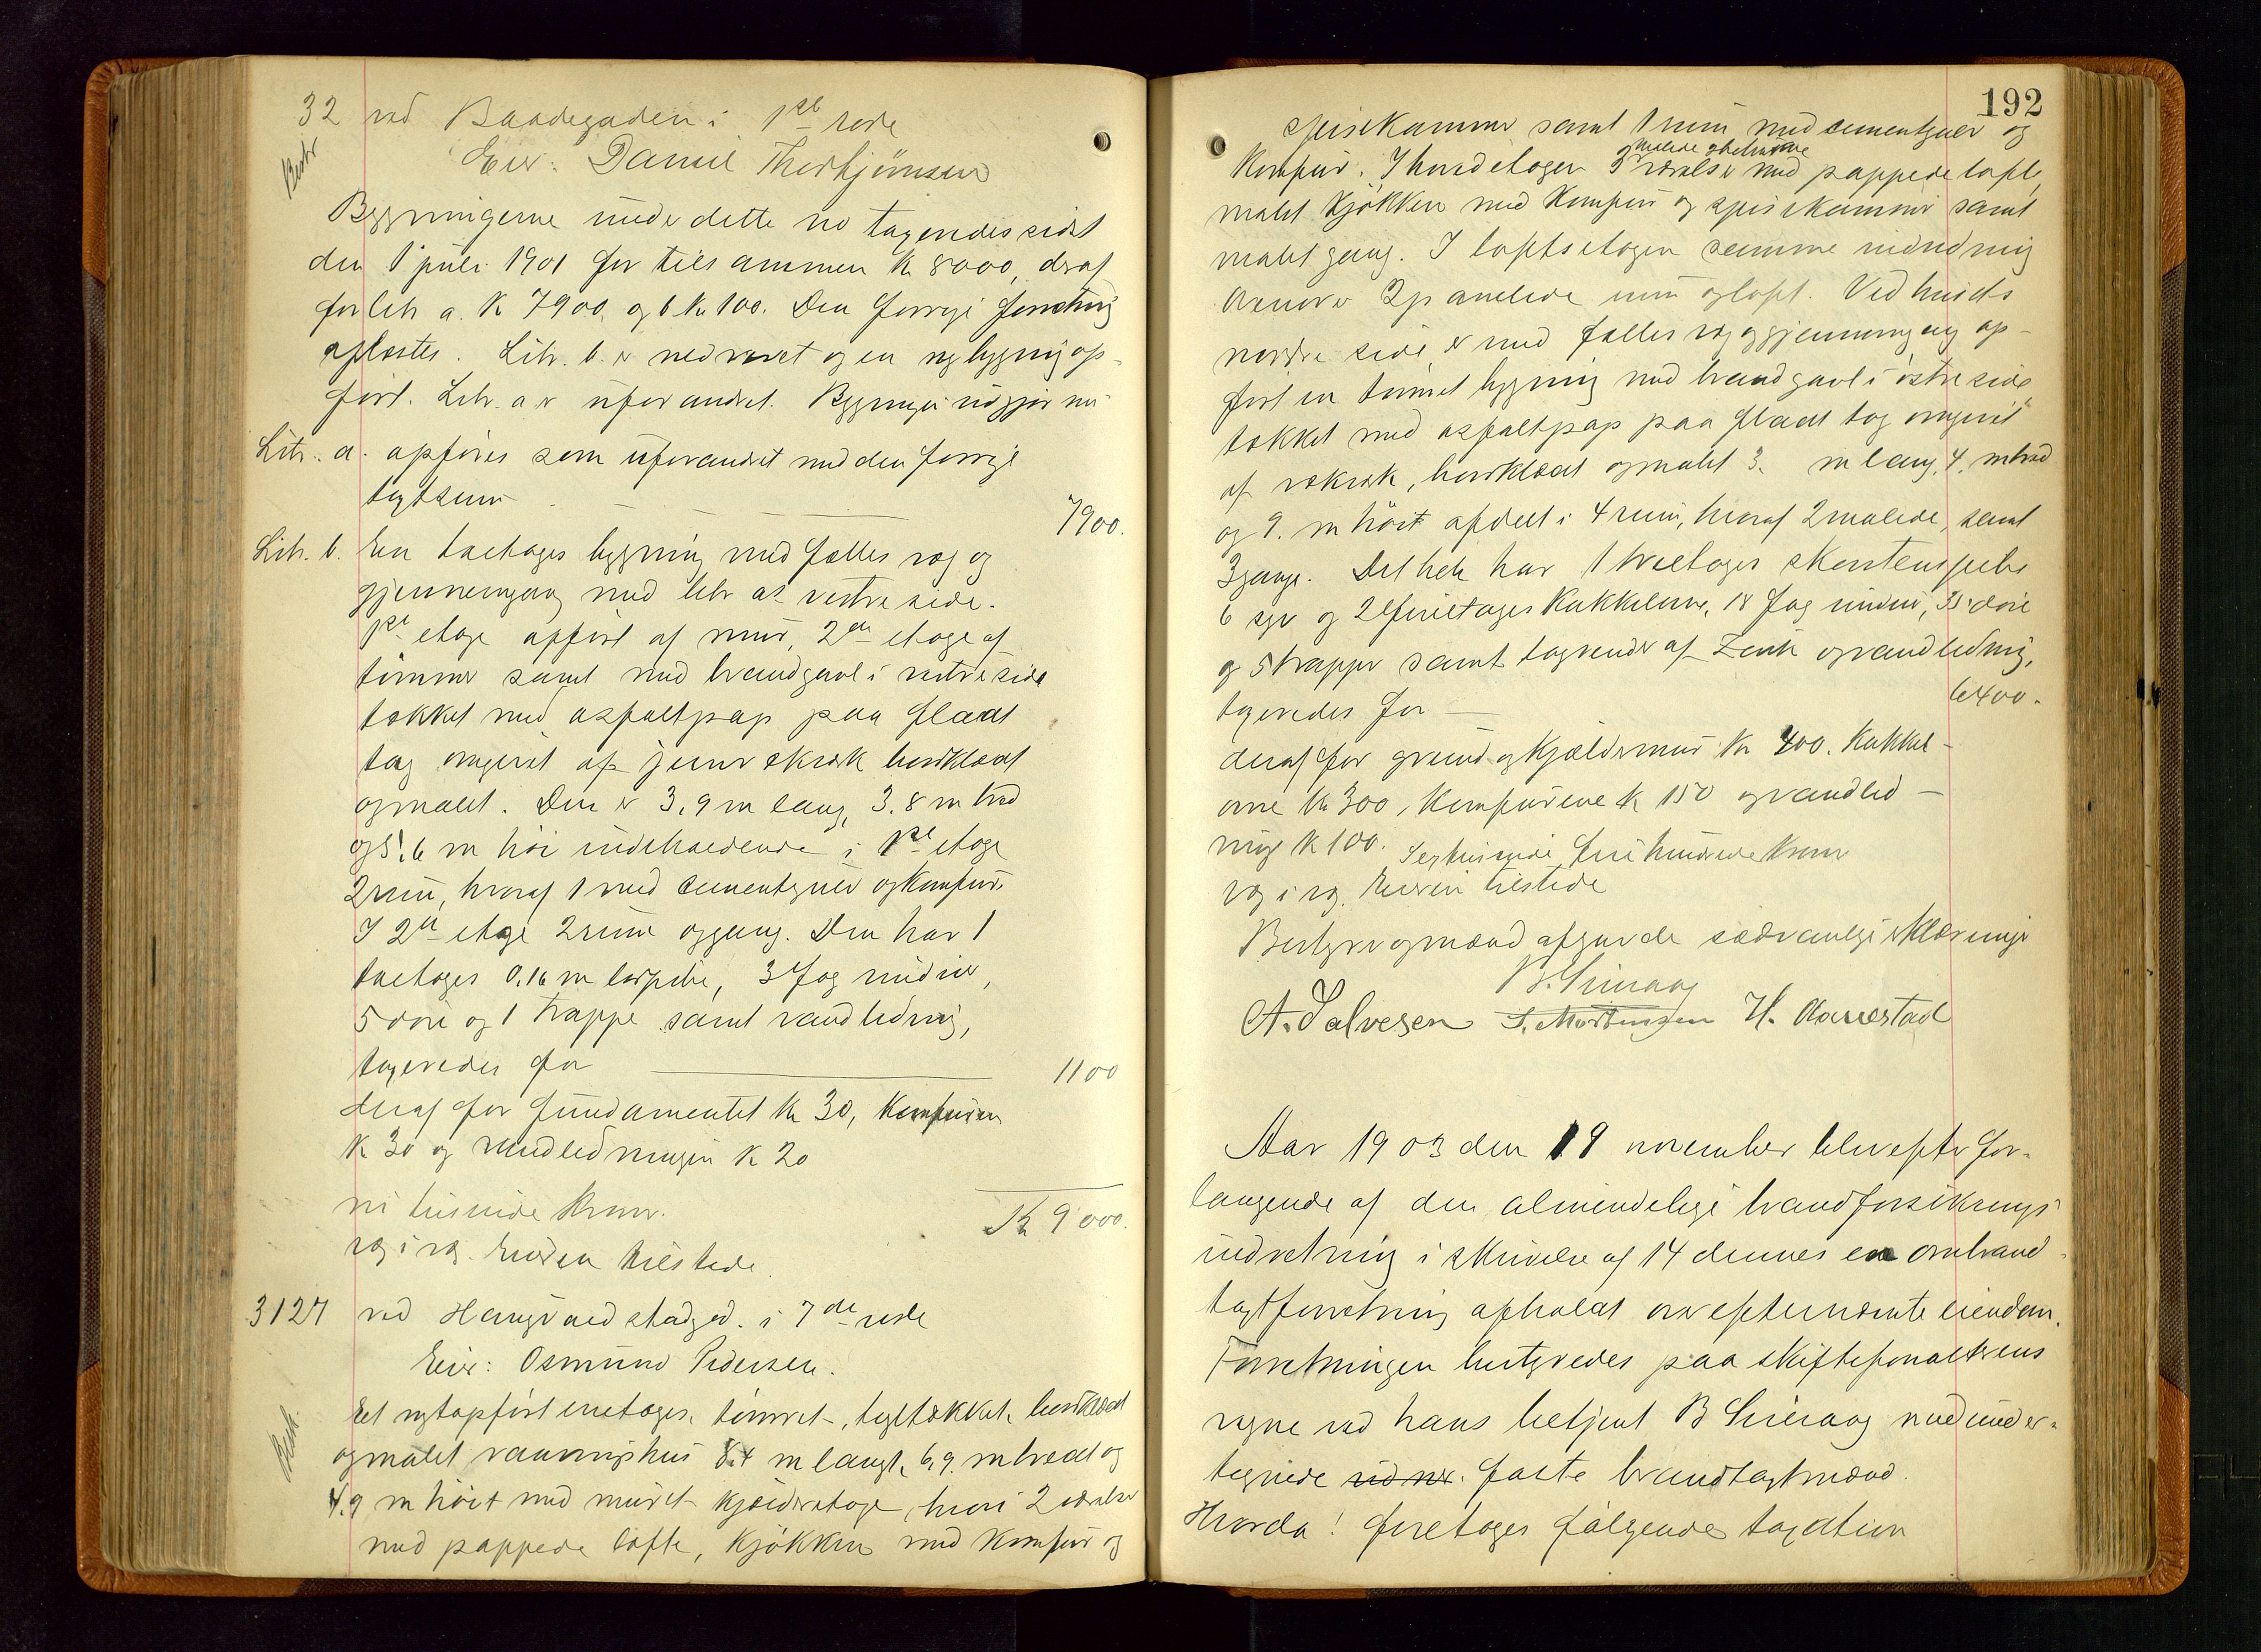 32 ved Baadegaden i 1ste rode
Bestr
Eier: Daniel Thorbjørnsen
Bygningerne under dette no taxeredes sidst
den 1 juli 1901 for tilsammen Kr 8000, deraf
for litr a. Kr 7900 og b Kr 100. Den forrige forretning
oplæstes. Litr. b. er nedrevet og en ny bygning op-
ført. Litr. a er uforandret. Bygningen udgjør nu
Litr. a. opføres som uforandret med den forrige
taxtsum — — — 7900.
Litr. b. En toetages bygning med fælles væg og
gjennemgang med litr as vestre side.
1ste etage opført af mur, 2den etage af
tømmer samt med brandgavl i vestre side
tækket med asfaltpap paa fladt
tag omgivet af jernrækværk bordklædt
og malet. Den er 3,9 m lang, 3.8 m bred
og 5,6 m høi indeholdende i 1ste etage
2 rum, hvoraf 1 med cementgulv og komfur.
I 2den etage 2 rum og gang. Den har 1
toetages 0.16 m løspibe, 3 fag vinduer,
5 døre og 1 trappe samt vandledning,
taxeredes for — 1100
deraf for fundamentet Kr 30, komfuren
Kr 30 og vandledningen Kr 20
ni tusinde kroner. Kr 9000.
væg i væg. Eieren tilstede.
3127 ved Haugvaldstadgd. i 7de rode
Eier: Osmund Pedersen.
Bestr.
Et nyopført enetages, tømret, tegltækket, bordklædt
og malet vaaningshus 8.4 m langt, 6,9. m bredt og
4,9 m høit med muret kjælderetage, hvori 2 værelser
med pappede lofte, kjøkken med komfur og
192
spisekammer samt 1 rum med cementgulv og
komfur. I hovedetagen 3 værelser med pappede lofte,
malede og betrukne
malet kjøkken med komfur og spisekammer samt
malet gang. I loftsetagen samme inddeling
Ovenover 2 panelede rum og loft. Ved husets
nordre side er med fælles væg og gjennemgang op-
ført en tømret bygning med brandgavl i østre side
tækket med asfaltpap paa fladt tag omgivet
af rækværk, bordklædt og malet 3. m lang, 4. m bred
og 9. m høit afdelt i 4 rum, hvoraf 2 malede, samt
3 gange. Det hele har 1 treetages skorstenspibe
6 og 2 fireetages kakkelovne, 18 fag vinduer, 35 døre
og 5 trapper samt tagrender af zink og vandledning,
taxeredes for — 6400.
deraf for grund og kjældermur Kr 400. Kakkel-
ovne Kr 300, komfurene Kr 150 og vandled-
ning Kr 100. Sextusinde fire hundrede kroner
væg i væg. Eieren tilstede
Bestyrer og mænd afgav de sædvanlige erklæringer
B. Sunaag
A. Salvesen S. Mortensen H. Aarrestad
Aar 1903 den 19 november blev efter for-
langende af den almindelige brandforsikrings
indretning i skrivelse af 14 dennes en ombrand-
taxtforretning afholdt over efternævnte eiendom.
Forretningen bestyredes paa skifteforvalterens
vegne ved hans betjent B Sunaag med under-
tegnede faste brandtaxtmænd.
Hvorda! foretages følgende taxation